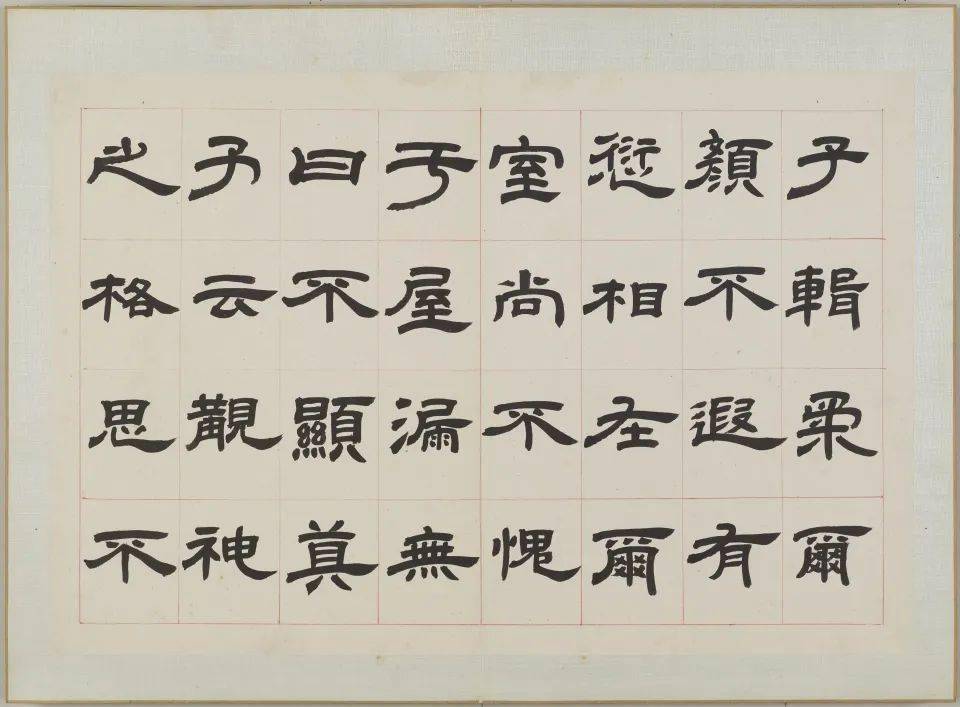 子輯柔爾
顏不遐有
愆相在爾
室尚不愧
于屋漏無
曰不顯莫
予云覯神
之格思不